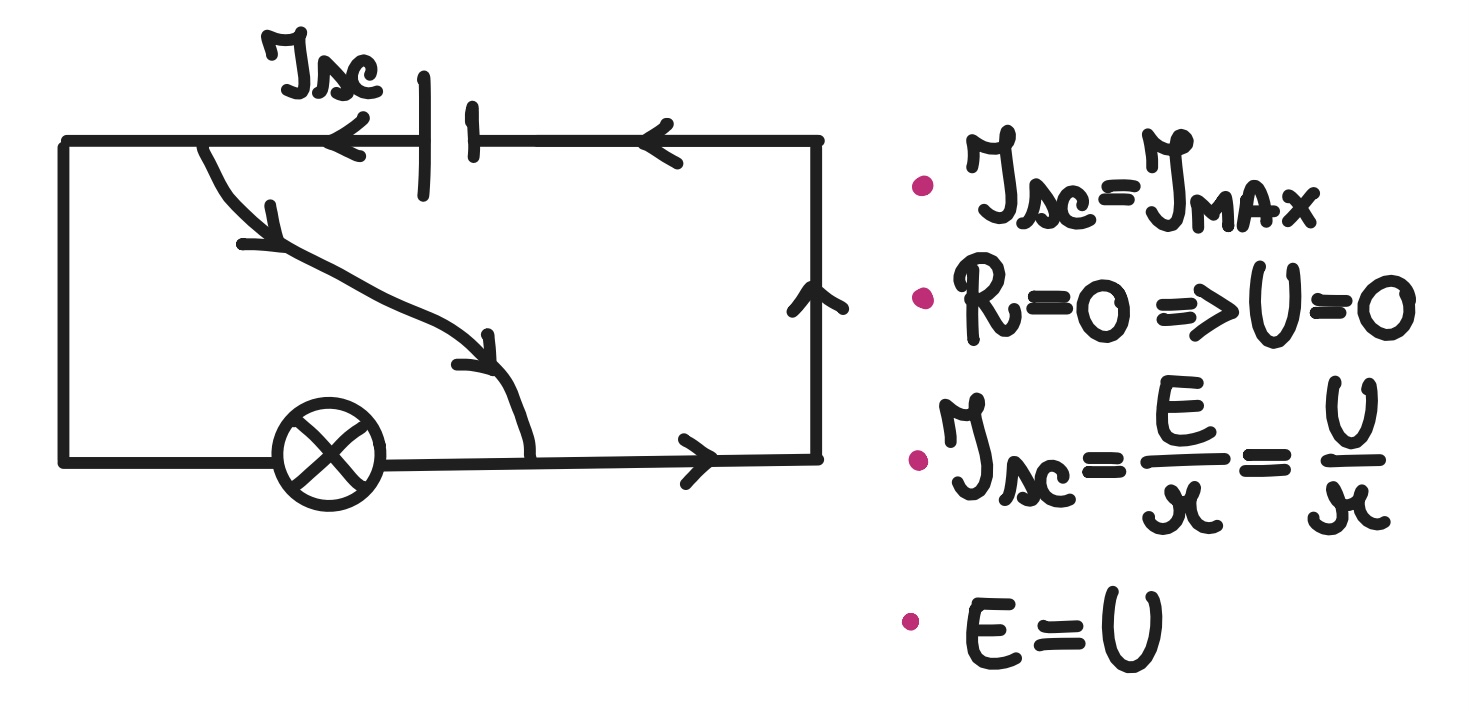 Isc
• Isc=IMAX
• R=0 => U=0
• Isc = E/r = U/r
• E=U